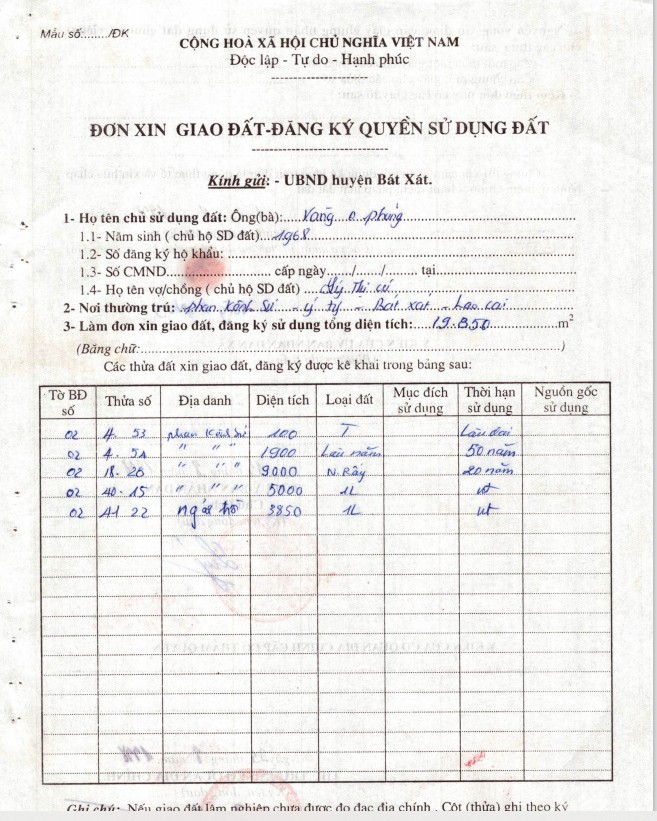 Mẫu số:......../ĐK
CỘNG HOÀ XÃ HỘI CHỦ NGHĨA VIỆT NAM
Độc lập - Tự do - Hạnh phúc
ĐƠN XIN GIAO ĐẤT-ĐĂNG KÝ QUYỀN SỬ DỤNG ĐẤT
Kính gửi: - UBND huyện Bát Xát.
1- Họ tên chủ sử dụng đất: Ông(bà):....Vàng A phủng
1.1- Năm sinh ( chủ hộ SD đất)...1968
1.2- Số đăng ký hộ khẩu:
1.3- Số CMND........................ cấp ngày...../....../....... tại
1.4- Họ tên vợ/chồng ( chủ hộ SD đất) Lý Thị
2- Nơi thường trú: phan Kánh Sử - ý tý - Bát xát - Lao cai
3- Làm đơn xin giao đất, đăng ký sử dụng tổng diện tích: 19.850 m2
(Bằng chữ: )
Các thửa đất xin giao đất, đăng ký được kê khai trong bảng sau:
Tờ BĐ số Thửa số Địa danh Diện tích Loại đất Mục đích sử dụng Thời hạn sử dụng Nguồn gốc sử dụng
02 4. 53 phan Kánh Sử 100 T Lâu dài
02 4. 51 " " " 1900 Lâu năm 50 năm
02 18-26 " " " 9000 N.Rẫy 20 năm
02 40-15 " " " 5000 1L nt
02 41 22 3850 1L nt
Ghi chú: Nếu giao đất lâm nghiệp chưa được đo đạc địa chính . Cột (thửa) ghi theo ký